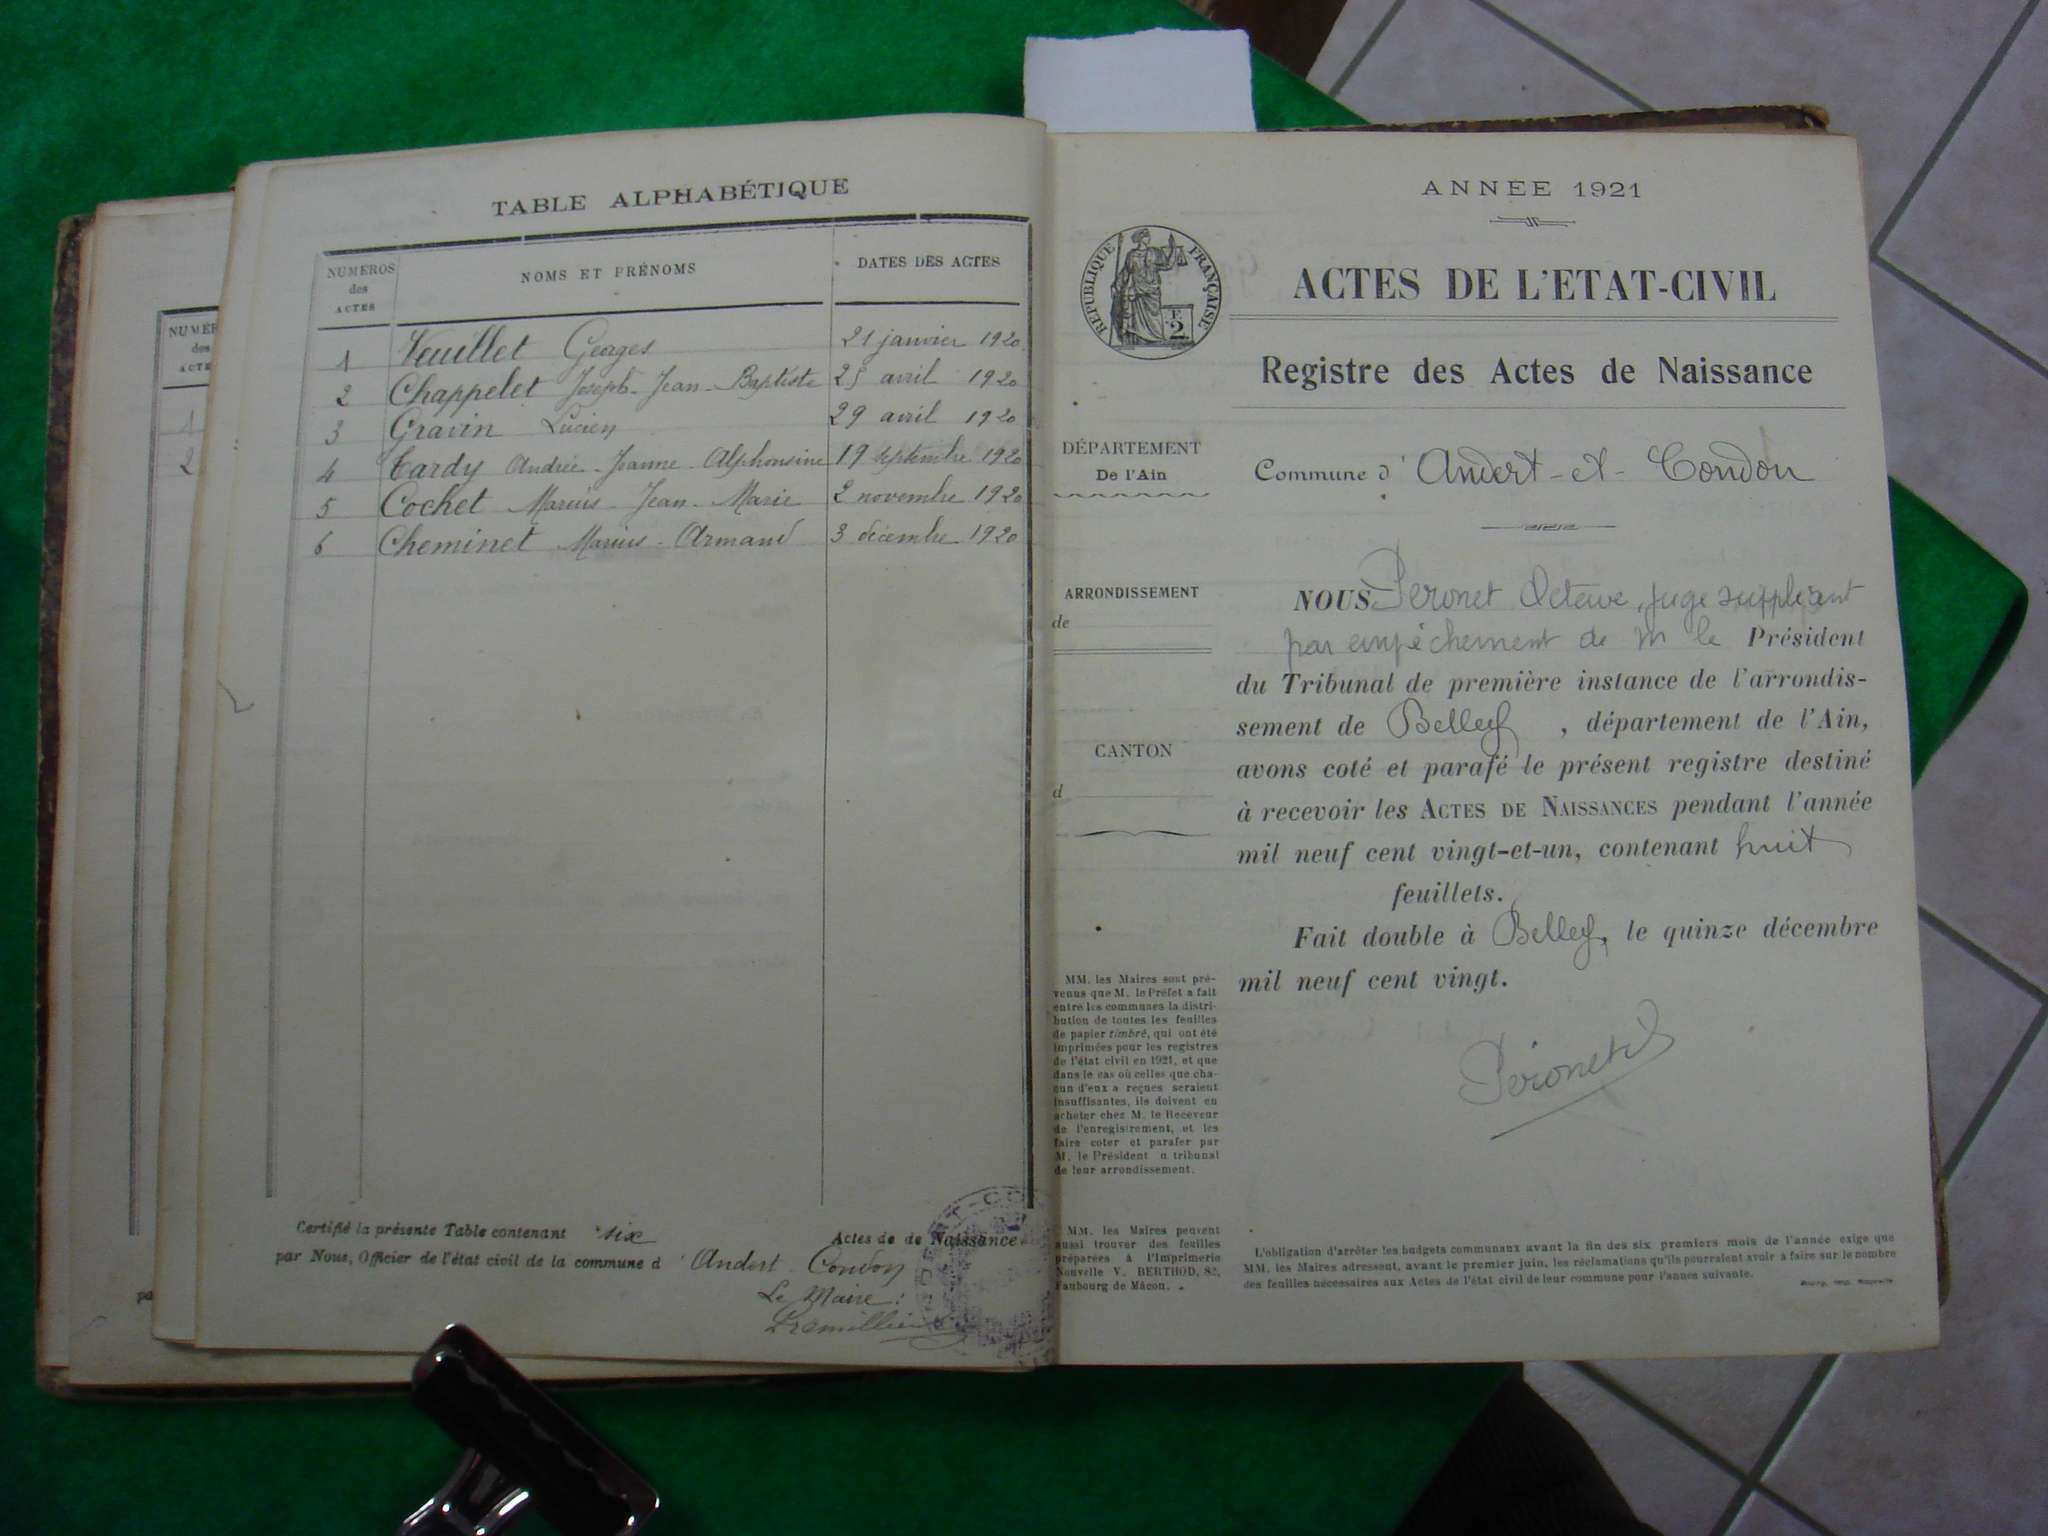 TABLE ALPHABÉTIQUE
NUMÉROS
des
ACTES
NOMS ET PRÉNOMS
DATES DES ACTES
1 Veuillet Georges 21 janvier 1920
2 Chappelet Joseph-Jean-Baptiste 25 avril 1920
3 Gravin Lucien 29 avril 1920
4 Tardy Andrée-Jeanne-Alphonsine 19 septembre 1920
5 Cochet Marius-Jean-Marie 2 novembre 1920
6 Cheminet Marius-Armand 3 décembre 1920
Certifié la présente Table contenant six Actes de de Naissance
par Nous, Officier de l'état civil de la commune d'Andert-Condon
Le Maire :
NUMÉR
des
ACTE
1
2
pa
ANNEE 1921
RÉPUBLIQUE FRANÇAISE
F.
2
ACTES DE L'ETAT-CIVIL
Registre des Actes de Naissance
DÉPARTEMENT
De l'Ain
Commune d'Andert-et-Condon
ARRONDISSEMENT
de
CANTON
d
NOUS Peronet Octave, juge suppléant
par empêchement de M le Président
du Tribunal de première instance de l'arrondis-
sement de Belley, département de l'Ain,
avons coté et parafé le présent registre destiné
à recevoir les ACTES DE NAISSANCES pendant l'année
mil neuf cent vingt-et-un, contenant huit
feuillets.
Fait double à Belley, le quinze décembre
mil neuf cent vingt.
Péronet
MM. les Maires sont pré-
venus que M. le Préfet a fait
entre les communes la distri-
bution de toutes les feuilles
de papier timbré, qui ont été
imprimées pour les registres
de l'état civil en 1921, et que
dans le cas où celles que cha-
cun d'eux a reçues seraient
insuffisantes, ils doivent en
acheter chez M. le Receveur
de l'enregistrement, et les
faire coter et parafer par
M. le Président u tribunal
de leur arrondissement.
MM. les Maires peuvent
aussi trouver des feuilles
préparées à l'Imprimerie
Nouvelle V. BERTHOD, 82,
Faubourg de Mâcon.
L'obligation d'arrêter les budgets communaux avant la fin des six premiers mois de l'année exige que
MM. les Maires adressent, avant le premier juin, les réclamations qu'ils pourraient avoir à faire sur le nombre
des feuilles nécessaires aux Actes de l'état civil de leur commune pour l'année suivante.
Bourg, imp. Nouvelle